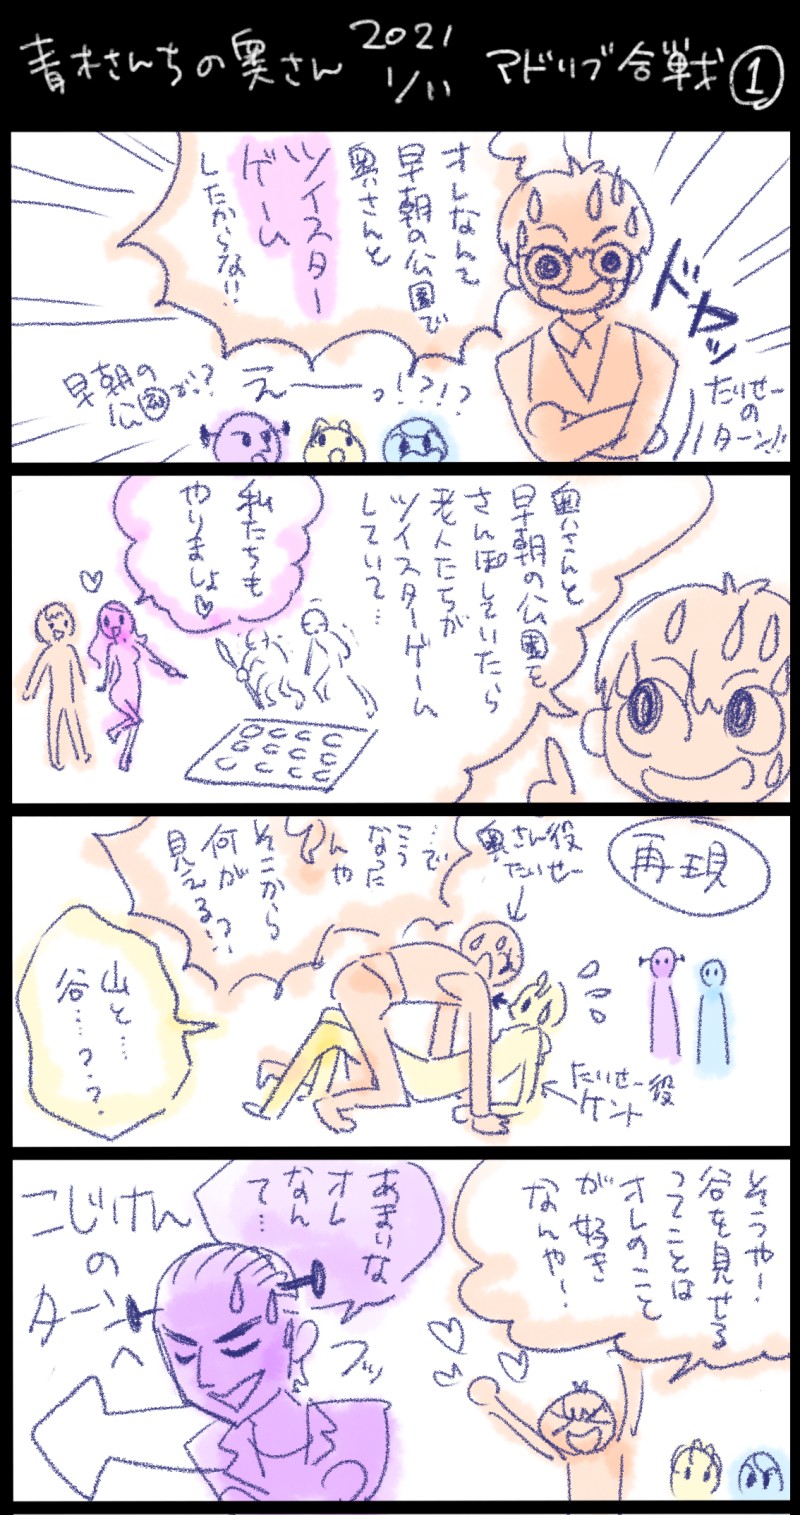 青木さんちの奥さん
2021
1/11
マドリブ合戦①
オレなんて
早朝の公園で
奥さんと
ツイスター
ゲーム
したからな!!
ドヤッ
たりせー
の
ターン!!
えーーっ!?!?
早朝の
公園で!?
奥さんと
早朝の公園を
さんぽしていたら
老人たちが
ツイスターゲーム
していて…
私たちも
やりましょ♡
再現
奥さん役
たりせー
…で
こう
なった
んや
そこから
何が
見える!?
山と…
谷…?？
たりせー役
ケント
そうや!
谷を見せる
ってことは
オレのこと
が好き
なんや!
あまいな
オレ
なん
て…
フッ
こじけん
の
ターン
へ